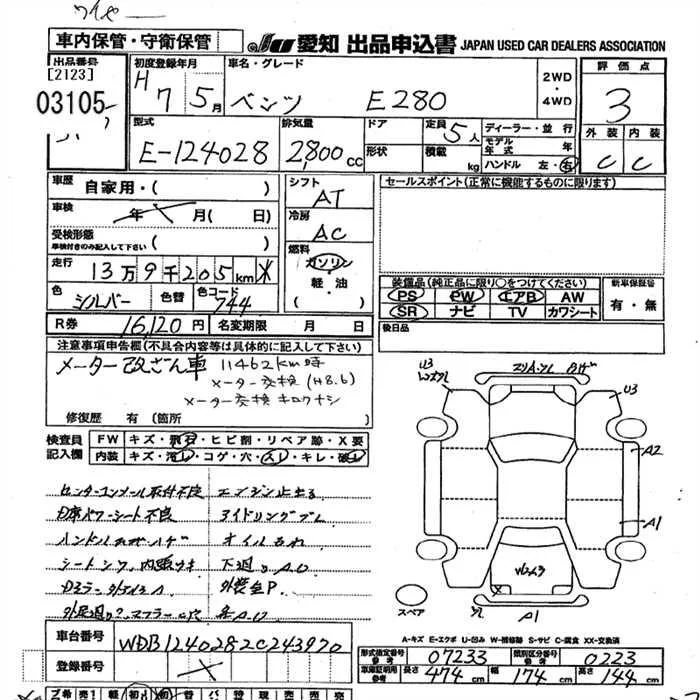 ワイヤ
車内保管・守衛保管
JU 愛知 出品申込書 JAPAN USED CAR DEALERS ASSOCIATION
出品番号
[2123]
03105
初度登録年月
H 7 5月
車名・グレード
ベンツ E280
2WD
・
4WD
評価点
3
外装 内装
C C
型式
E-124028
排気量
2,800cc
ドア
形状
定員 5人
積載 kg
ディーラー・並行
モデル年式 年
ハンドル 左・右
車歴
自家用・( )
車検
年 月( 日)
受検形態
車検付きのみ記入して下さい ( )
走行
13万9千205km
色
シルバー
色替
色コード
744
シフト
AT
冷房
AC
燃料
ガソリン
軽・油
( )
セールスポイント(正常に機能するものに限ります)
装備品(純正品に限り○をつけてください)
PS PW エアB AW
SR ナビ TV カワシート
新車保証書
有・無
R券 16,120円
名変期限 月 日
後日品
注意事項申告欄(不具合内容等は具体的に記入して下さい)
メーター改ざん車 11462km時
メーター交換(H8.6)
メーター交換キロクナシ
修復歴 有(箇所 )
検査員記入欄
FW キズ・飛石・ヒビ割・リペア跡・X要
内装 キズ・汚レ・コゲ・穴・スレ・キレ・破レ
センターコンソール取付不良 エンジン止まる
D席パワーシート不良 アイドリングブレ
オイルもれ
下廻り
外装全P.
U3
U3
A2
A1
A1
スペア
A-キズ E-エクボ U-凹み W-補修跡 S-サビ C-腐食 XX-交換済
車台番号 WDB1240282C243970
登録番号
形式指定番号 参考 07233
類別区分番号 参考 0223
車庫証明用 参考 長さ 474cm 幅 174cm 高さ 144cm